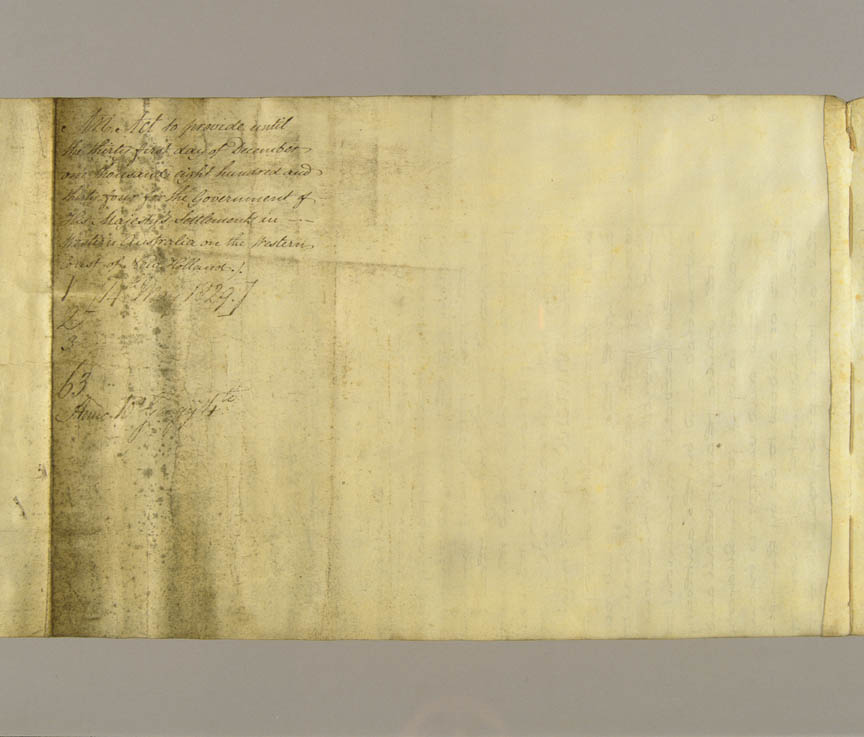 An Act to provide until
the thirty first day of December
one thousand eight hundred and
thirty four for the Government of
His Majesty's Settlements in
Western Australia on the Western
Coast of New Holland /.
1 14th May 1829.]
2
3
63
Anno 10° Georgij 4th